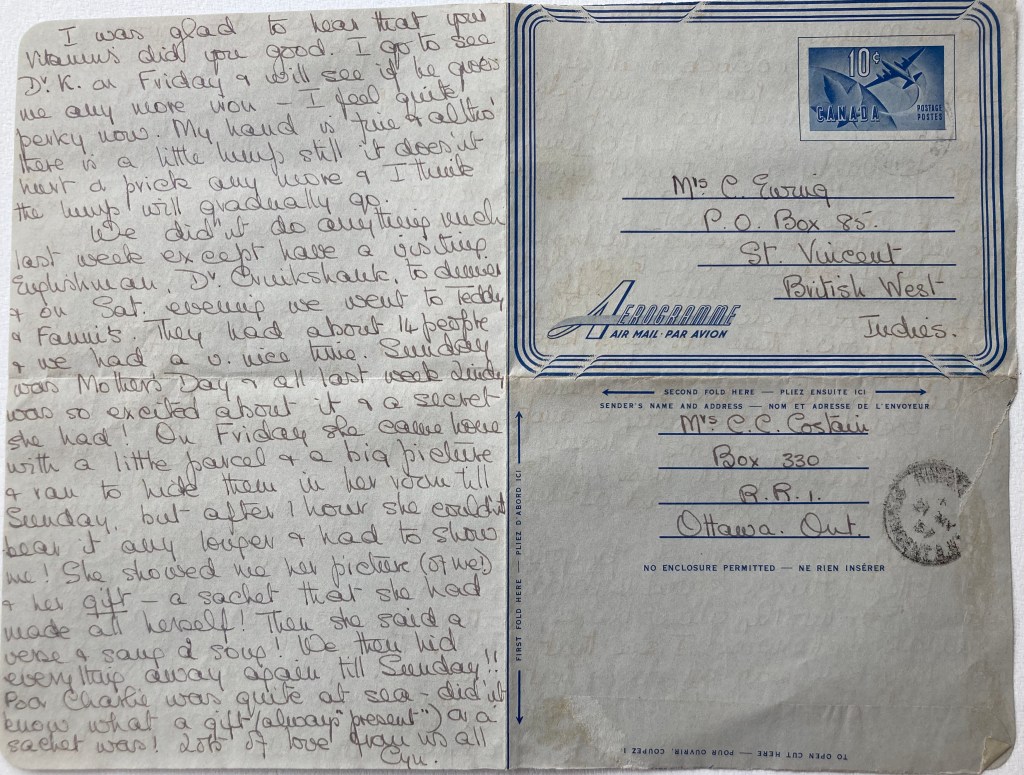 I was glad to hear that your
vitamins did you good. I go to see
Dr K. on Friday & will see if he gives
me any more iron – I feel quite
perky now. My hand is fine & altho'
there is a little lump still it does'nt
hurt a prick any more & I think
the lump will gradually go.
We did'nt do anything much
last week except have a visiting
Englishman, Dr Cruikshank, to dinner
& on Sat. evening we went to Teddy
& Fanni's. They had about 14 people
& we had a v. nice time. Sunday
was Mothers Day & all last week Lindy
was so excited about it & a secret
she had! On Friday she came home
with a little parcel & a big picture
& ran to hide them in her room till
Sunday, but after 1 hour she could'nt
bear it any longer & had to show
me! She showed me her picture (of me!)
& her gift – a sachet that she had
made all herself! Then she said a
verse & sang a song! We then hid
everything away again till Sunday!!
Poor Charlie was quite at sea – did'nt
know what a gift (always "present") or a
sachet was! Lots of love from us all
Cyn.
10¢
CANADA
POSTAGE
POSTES
Mrs C. Ewing
P.O. Box 85.
St. Vincent
British West
Indies.
AEROGRAMME
AIR MAIL · PAR AVION
SECOND FOLD HERE — PLIEZ ENSUITE ICI
SENDER'S NAME AND ADDRESS — NOM ET ADRESSE DE L'ENVOYEUR
Mrs C.C. Costain
Box 330
R.R.1.
Ottawa. Ont.
NO ENCLOSURE PERMITTED — NE RIEN INSÉRER
FIRST FOLD HERE — PLIEZ D'ABORD ICI
TO OPEN CUT HERE — POUR OUVRIR, COUPEZ I